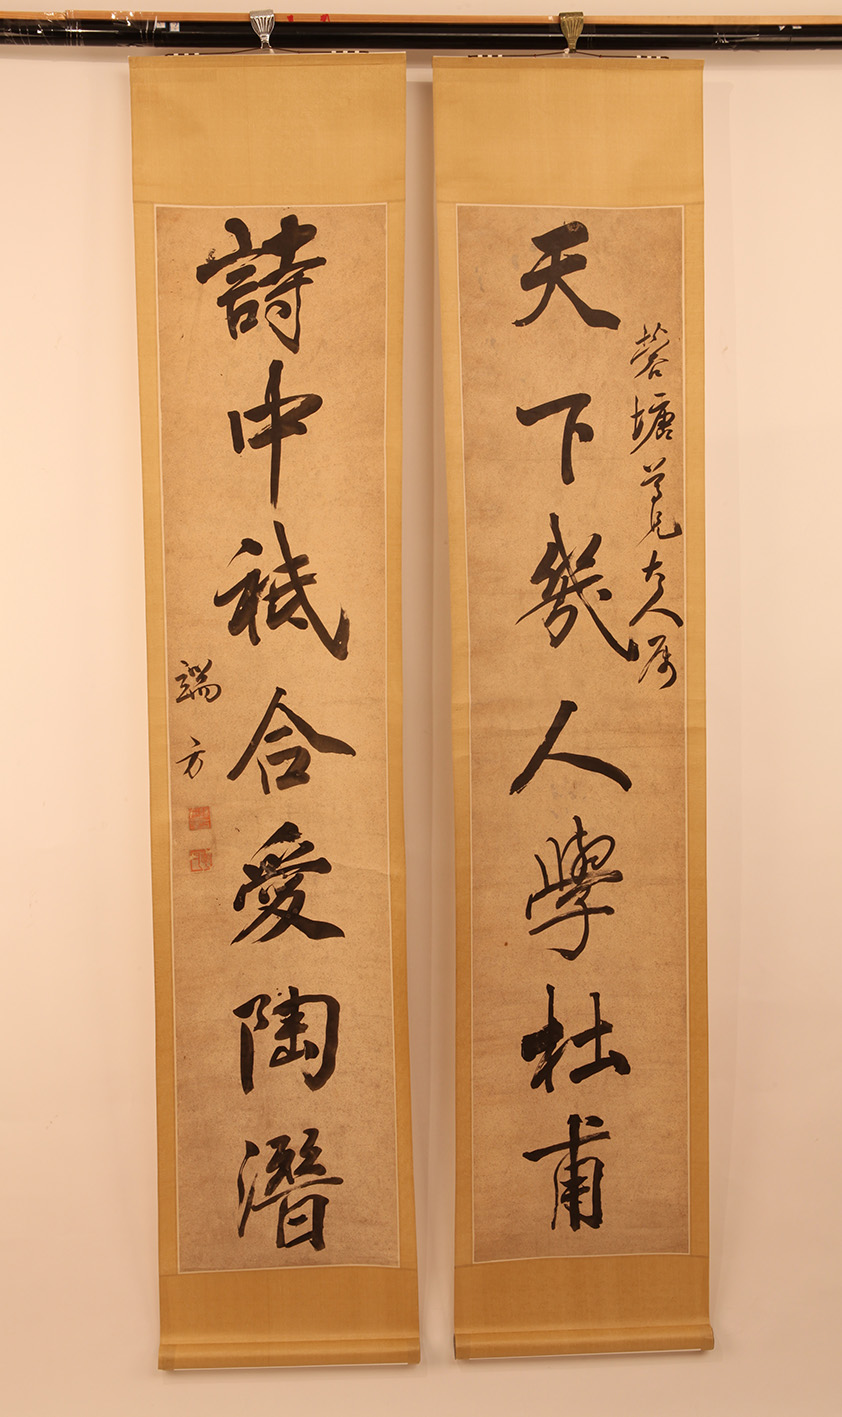 天下幾人學杜甫
蓉塘尊兄大人屬
詩中祇合愛陶潛
端方